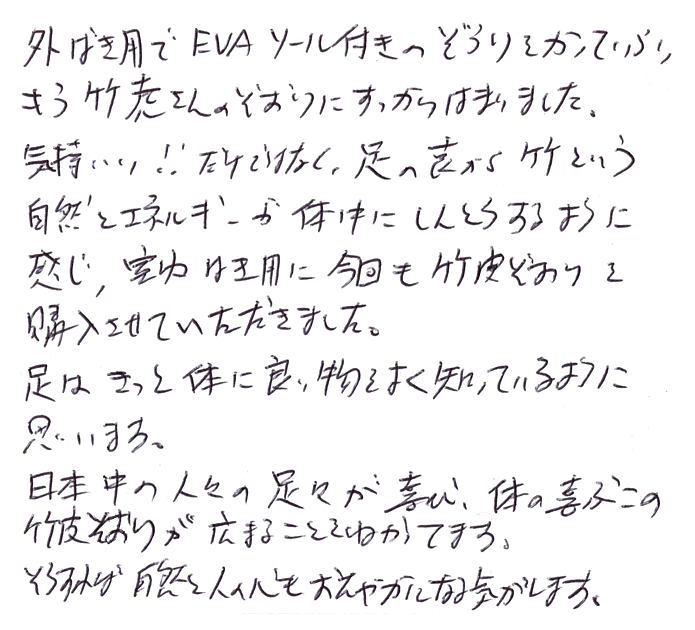 外ばき用でEVAソール付きのぞうりをかっていらい、
もう竹虎さんのぞおりにすっかりはまりました。
気持いい!!だけではなく、足の裏から竹という
自然とエネルギーが体中にしんとうするように
感じ、室内はき用に今回も竹皮ぞおりを
購入させていただきました。
足はきっと体に良い物をよく知っているように
思います。
日本中の人々の足々が喜び、体の喜ぶこの
竹皮ぞおりが広まることをねがってます。
そうすれば自然と人の心もおだやかになる気がします。